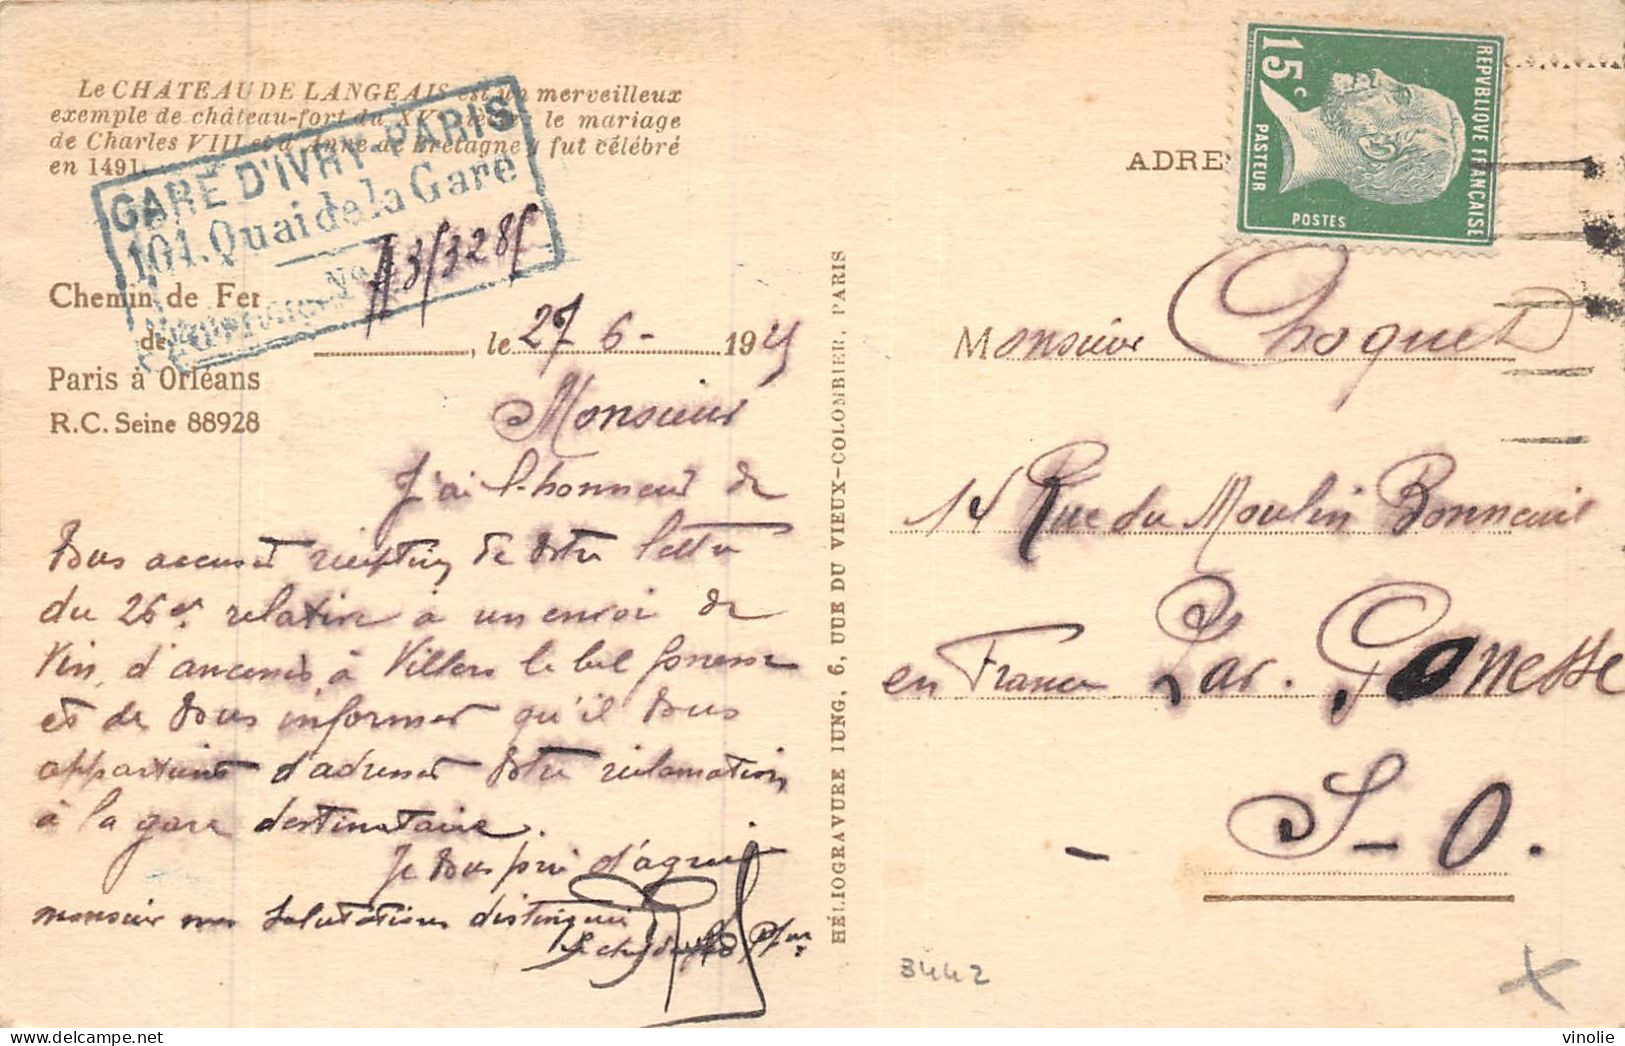 Le CHATEAU DE LANGEAIS est un merveilleux
exemple de château-fort du XVe siècle, le mariage
de Charles VIII et d'Anne de Bretagne y fut célébré
en 1491.
GARE D'IVRY-PARIS
101. Quai de la Gare
No 113/3285
Chemin de Fer
de
Paris à Orléans
R.C. Seine 88928
, le 27 6 - 1925
Monsieur
J'ai l'honneur de
Vous accuser réception de votre lettre
du 26 ct relative à un envoi de
Vin, d'ancenis à Villers le bel gonesse
et de vous informer qu'il vous
appartient d'adresser votre réclamation
à la gare destinataire.
Je vous prie d'agréer
monsieur mes salutations distinguées
HÉLIOGRAVURE IUNG, 6, RUE DU VIEUX-COLOMBIER, PARIS
REPVBLIQVE FRANÇAISE
15c
PASTEUR
POSTES
ADRE
Monsieur Choquet
14 Rue du Moulin Bonneuil
en France Par. Gonesse
- S-O.
3442
vinolie